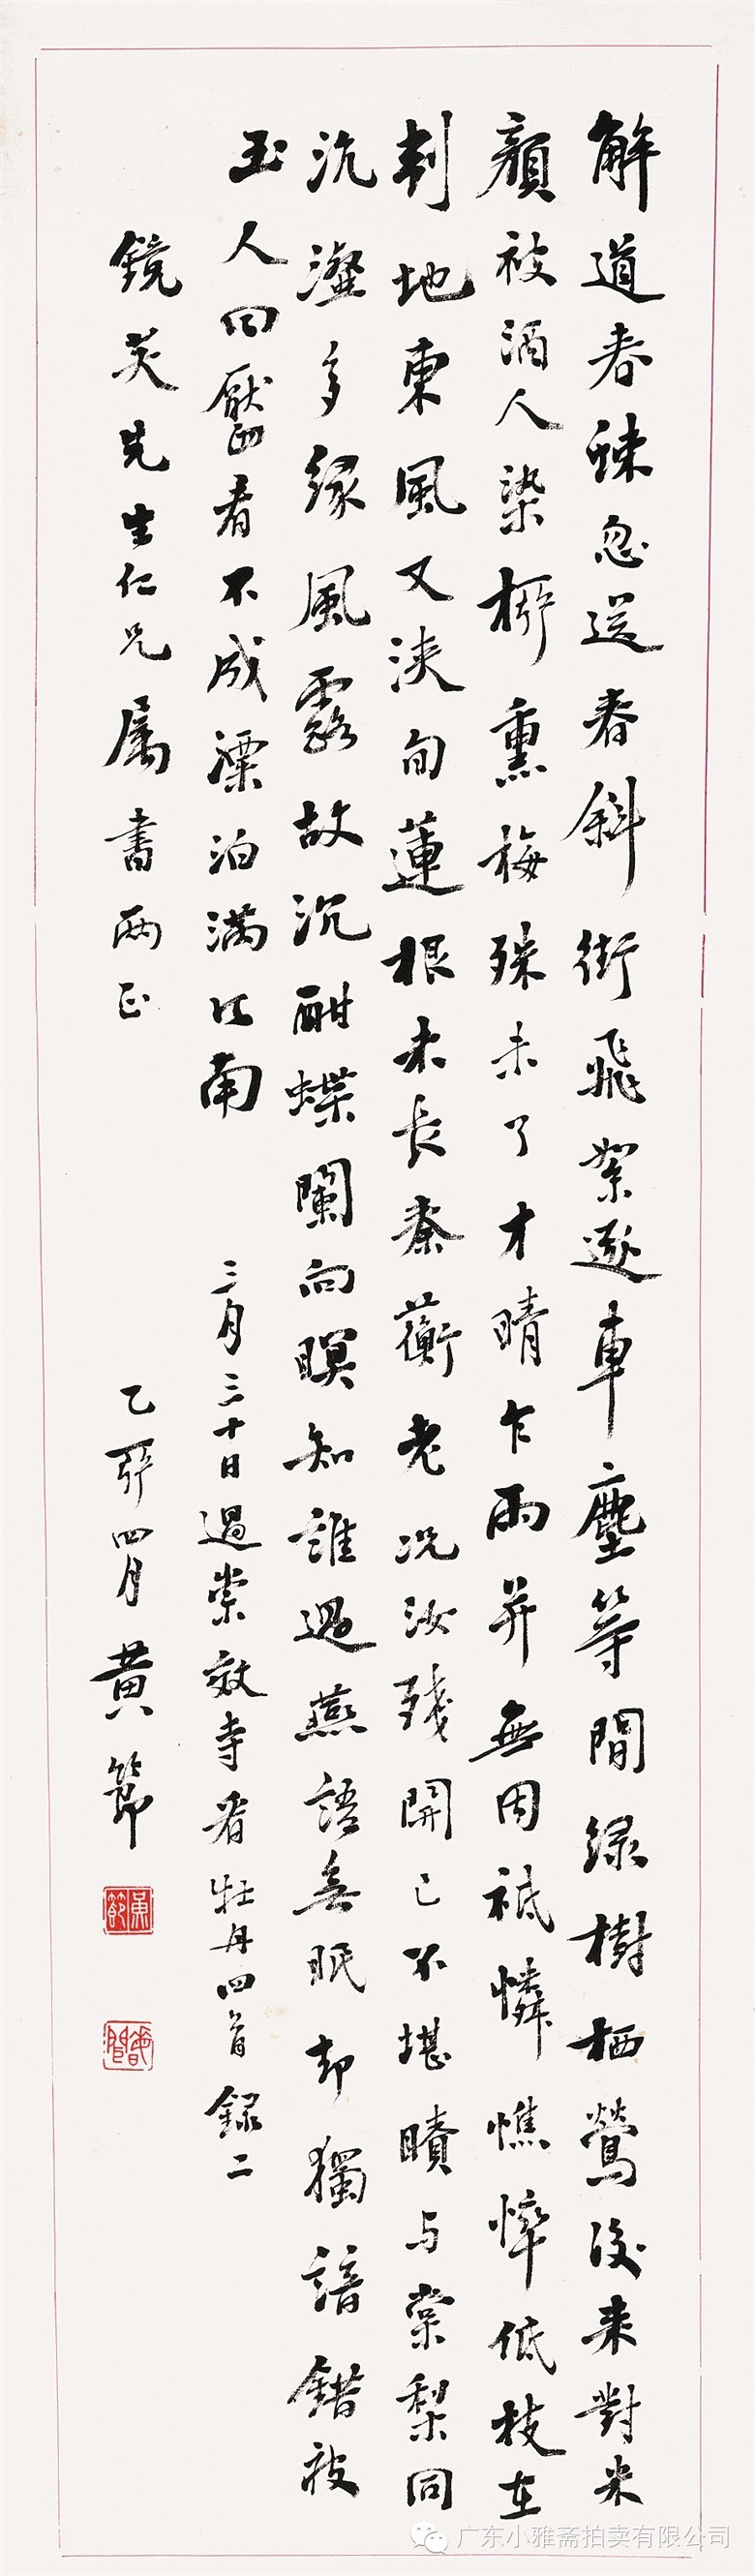 解道春疎忽送春斜街飛絮逐車塵等閒綠樹栖鶯後來對朱
顏被酒人染柳熏梅殊未了才晴乍雨并無因祗憐憔悴低枝在
判地東風又浹旬蓮根未長秦蘅老況汝殘開已不堪矉与棠梨同
沆瀣多緣風露故沉酣蝶闌向暝知誰過燕語無眠却獨諳錯被
玉人回靨看不成漂泊滿江南
三月三十日過崇效寺看牡丹四首錄二
鏡芙先生仁兄屬書兩正
乙亥四月黃節
黃節
广东小雅斋拍卖有限公司